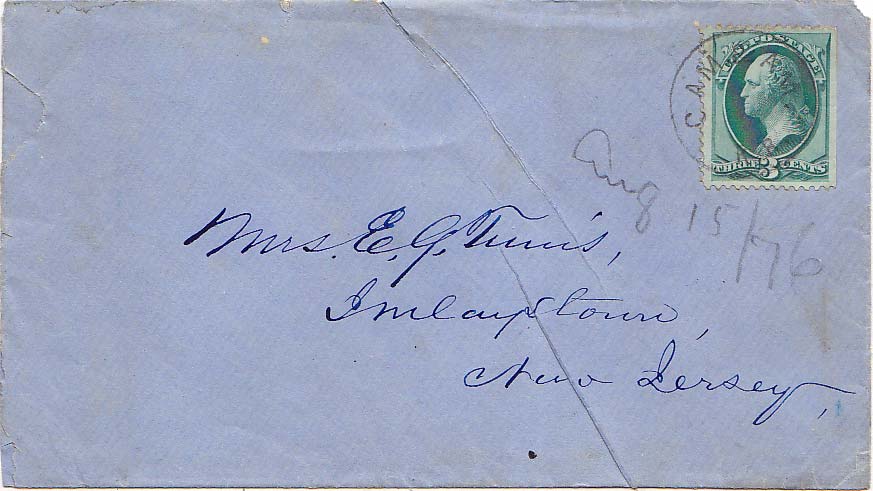 U.S. POSTAGE
CAM
THREE 3 CENTS
Aug 15/76
Mrs. E. G. Tunis,
Imlaystown,
New Jersey,